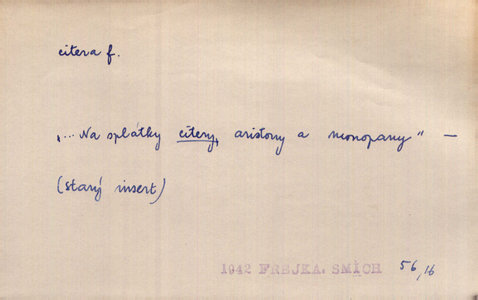 citera f.
„... Na splátky citery, aristony a monopany“ —
(starý insert)
1942 FREJKA. SMÍCH 56,16